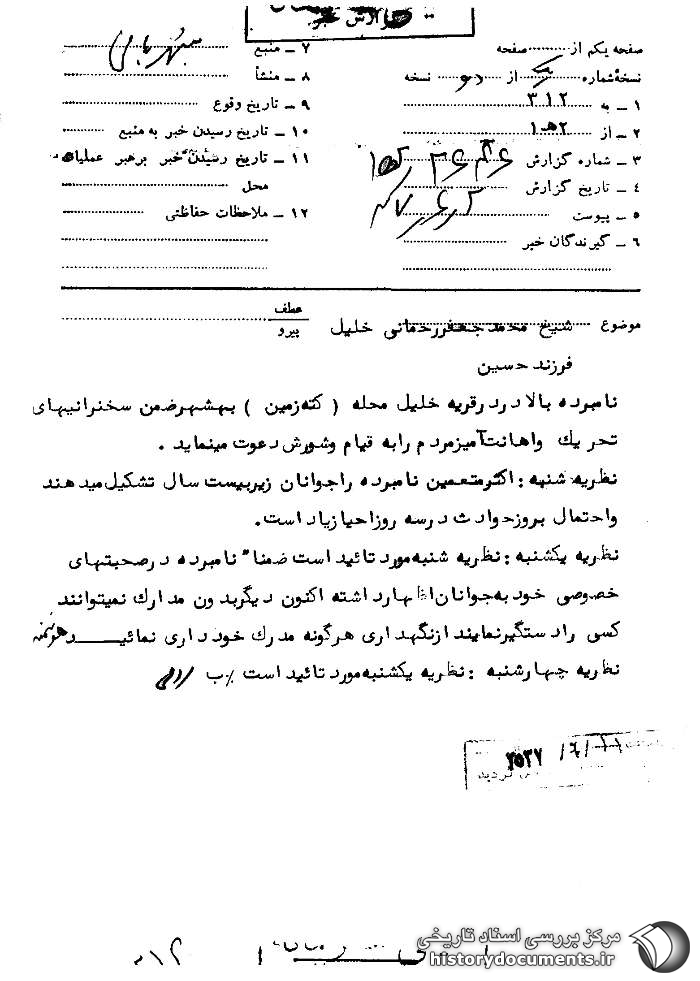 گزارش خبر
صفحه یکم از صفحه
نسخهٔ شماره یک از دو نسخه
۱ ـ به ۳۱۲
۲ ـ از ۲هـ۱
۳ ـ شماره گزارش
۴ ـ تاریخ گزارش
۵ ـ پیوست
۶ ـ گیرندگان خبر
۷ ـ منبع
۸ ـ منشأ
۹ ـ تاریخ وقوع
۱۰ ـ تاریخ رسیدن خبر به منبع
۱۱ ـ تاریخ رسیدن خبر برهبر عملیات
محل
۱۲ ـ ملاحظات حفاظتی
موضوع شیخ محمد جعفر رحمانی خلیل
عطف
پیرو
فرزند حسین
نامبرده بالا در قریه خلیل محله ( کته زمین ) بهشهر ضمن سخنرانیهای
تحریک واهانت آمیز مردم را به قیام وشورش دعوت مینماید .
نظریه شنبه : اکثر متعمین نامبرده را جوانان زیر بیست سال تشکیل میدهند
واحتمال بروز حوادث در سه روز احیا زیاد است .
نظریه یکشنبه : نظریه شنبه مورد تائید است ضمنا" نامبرده در صحبتهای
خصوصی خود به جوانان اظهار داشته اکنون دیگر بدون مدارک نمیتوانند
کسی را دستگیر نمایند از نگهداری هرگونه مدرک خود داری نمائیــد
نظریه چهارشنبه : نظریه یکشنبه مورد تائید است /. ب
۲۵۳۷
گردید
مرکز بررسی اسناد تاریخی
historydocuments.ir